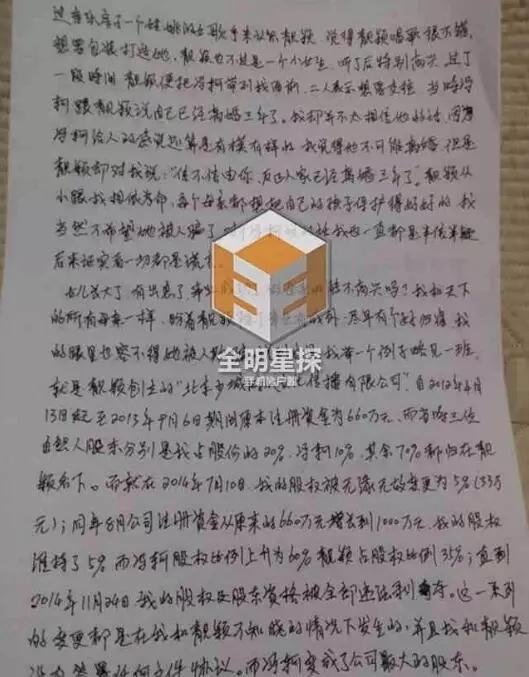 一个姓姚的女歌手来认识靓颖，觉得靓颖唱歌很不错
想要包装打造她，靓颖也不过是一个小女生，听了后特别高兴，过了
一段时间靓颖便把冯柯带到我面前，二人表示想要交往，当时冯
柯跟靓颖说自己已经离婚三年了。我却并不太相信他的话，因为
冯柯给人的感觉还算是有模有样的，我觉得他不可能离婚，但是
靓颖却对我说："信不信由你，反正人家已经离婚三年了。靓颖从
小跟我相依为命，每个母亲都想把自己的孩子保护得好好的，我
当然不希望她被人骗了，对冯柯的话我也一直都是半信半疑
后来证实着一切都是谎言。
女儿长大了，有出息了，不高兴吗？我和天下
的所有母亲一样，盼着靓颖尽早有个好归宿，我
的眼里也容不得她被人欺，我举一个例子略见一斑，
就是靓颖创立的"北京少城时代文化传播有限公司"自2012年4月
13日起至2013年9月6日期间原本注册资金为660万元，而当时三位
自然人股东分别是我占股份的20%，冯柯10%，其余70%都归在靓
颖名下。而就在2014年7月10日，我的股权被无缘无故变更为5%(33万
元)；同年8月公司注册资金从原来的660万元增长到1000万元，我的股权
维持了5%而冯柯股权比例上升为60%靓颖占股权比例35%；直到
2014年11月24日我的股权及股东资格被全部违法剥夺。这一系列
的变更都是在我和靓颖不知晓的情况下发生的，并且我和靓颖
没有签署任何文件协议。而冯柯变成了公司最大的股东。
全明星探